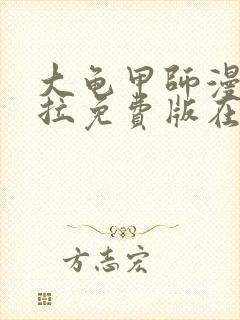 大龟甲师漫
拉免费版在
方志宏